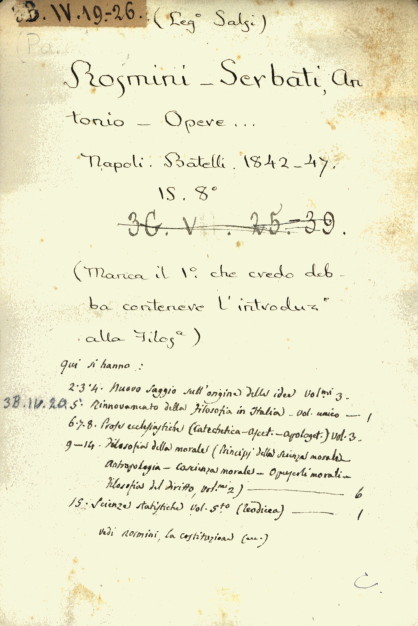 3B. IV. 19-26. (Leg° Salzi)
Rosmini - Serbati, An
tonio - Opere...
Napoli. Batelli. 1842-47.
15. 8°
3C. V . 25.-39.
(Manca il 1°. che credo deb-
ba contenere l'introduz.e
alla Filos.a)
Qui si hanno:
2.3.4. Nuovo saggio sull'origine delle idee vol.mi 3-
3B.IV.20. 5° Rinnovamento della filosofia in Italia - vol. unico - 1
6.7.8. Prose ecclesiastiche (Catechetica - Ascet. - Apologet.) Vol. 3-
9-14. Filosofia della morale (Principj della scienza morale
Antropologia - Coscienza morale - Opuscoli morali -
Filosofia del Diritto, vol.mi 2) - 6
15: Scienze metafisiche vol. 5to (Teodicea) - 1
Vedi Rosmini, La costituzione
C.